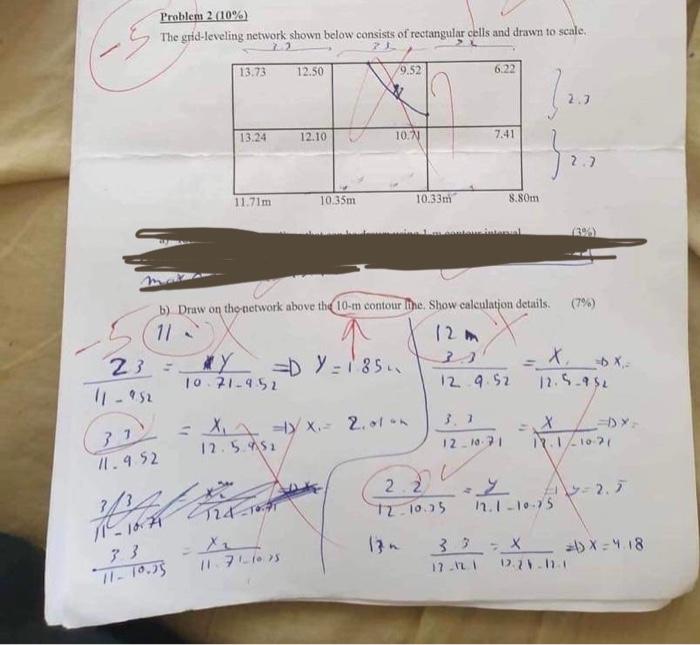 Problem 2 (10%)
-5
The grid-leveling network shown below consists of rectangular cells and drawn to scale.
13.73 12.50 9.52 6.22
2.2
13.24 12.10 10.71 7.41
2.2
11.71m 10.35m 10.33m 8.80m
(3%)
b) Draw on the network above the 10-m contour line. Show calculation details. (7%)
-5
11
12 m
23 / 11-9.52 = Y / 10.71-9.52 => Y = 1.85
3.3 / 12-9.52 = X / 12.5-9.52 => X =
3.3 / 11-9.52 = X₁ / 12.5-9.52 => X₁ = 2.01
3.3 / 12-10.71 = X / 12.1-10.71 => X =
2.2 / 12-10.35 = y / 12.1-10.35 y = 2.3
3.3 / 11-10.35 = X₂ / 11.71-10.35
13 3.3 / 13-12.1 = X / 13.24-12.1 => X = 4.18